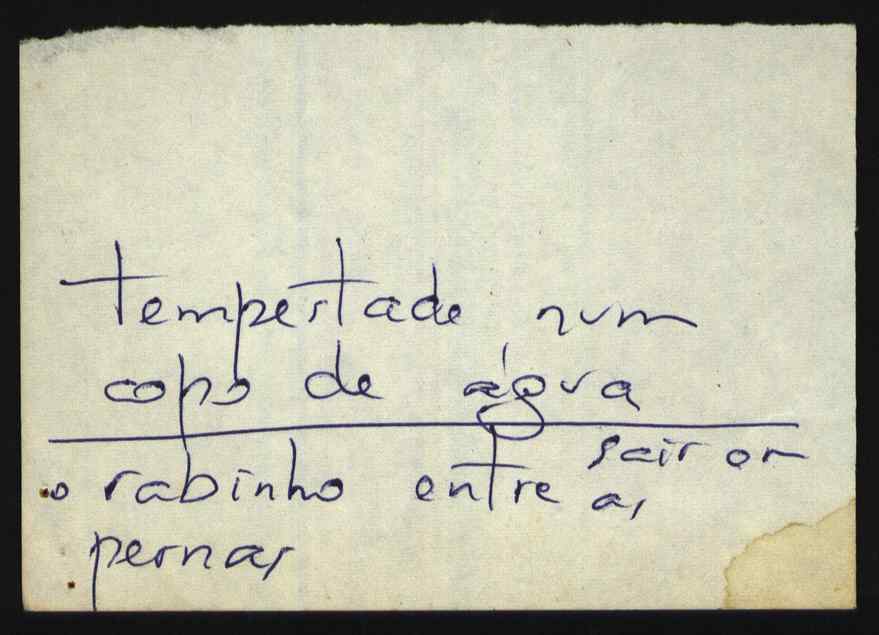 tempestade num
copo de água
sair om
o rabinho entre as
pernas